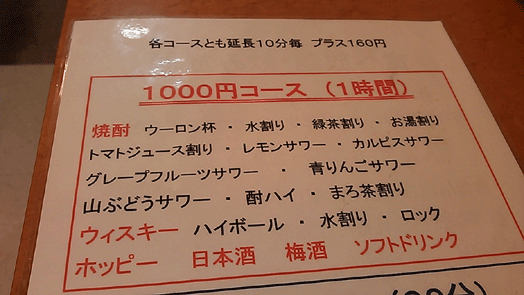 各コースとも延長10分毎 プラス160円
1000円コース（1時間）
焼酎 ウーロン杯・水割り・緑茶割り・お湯割り
トマトジュース割り・レモンサワー・カルピスサワー
グレープフルーツサワー・青りんごサワー
山ぶどうサワー・酎ハイ・まろ茶割り
ウィスキー ハイボール・水割り・ロック
ホッピー 日本酒 梅酒 ソフトドリンク